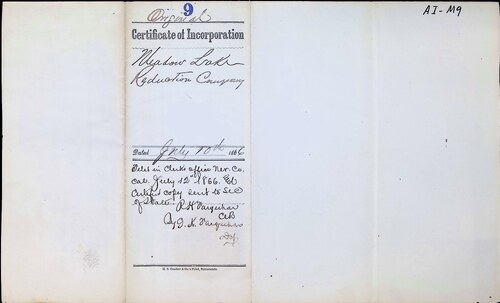 9
AI-M9
Original
Certificate of Incorporation
Meadow Lake
Reduction Company
Dated July 10th 1866
Filed in Clerks office Nev. Co.
Cal. July 12th 1866.
copy sent to Sec
of State. R H Farquhar
Clk
By J. N. Farquhar
Dy.